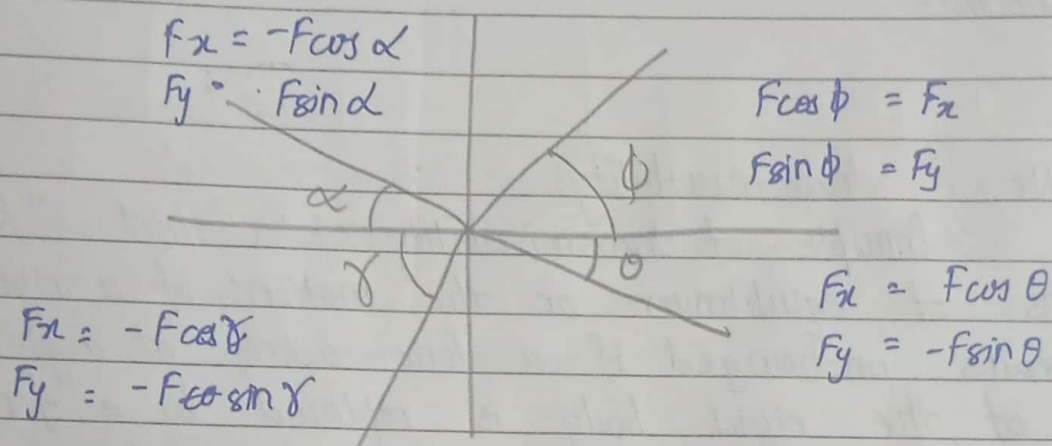 Fx = -Fcos α
Fy = Fsin α
Fcos ϕ = Fx
Fsin ϕ = Fy
α
ϕ
γ
θ
Fx = Fcos θ
Fy = -Fsin θ
Fx = -Fcos γ
Fy = -F sin γ